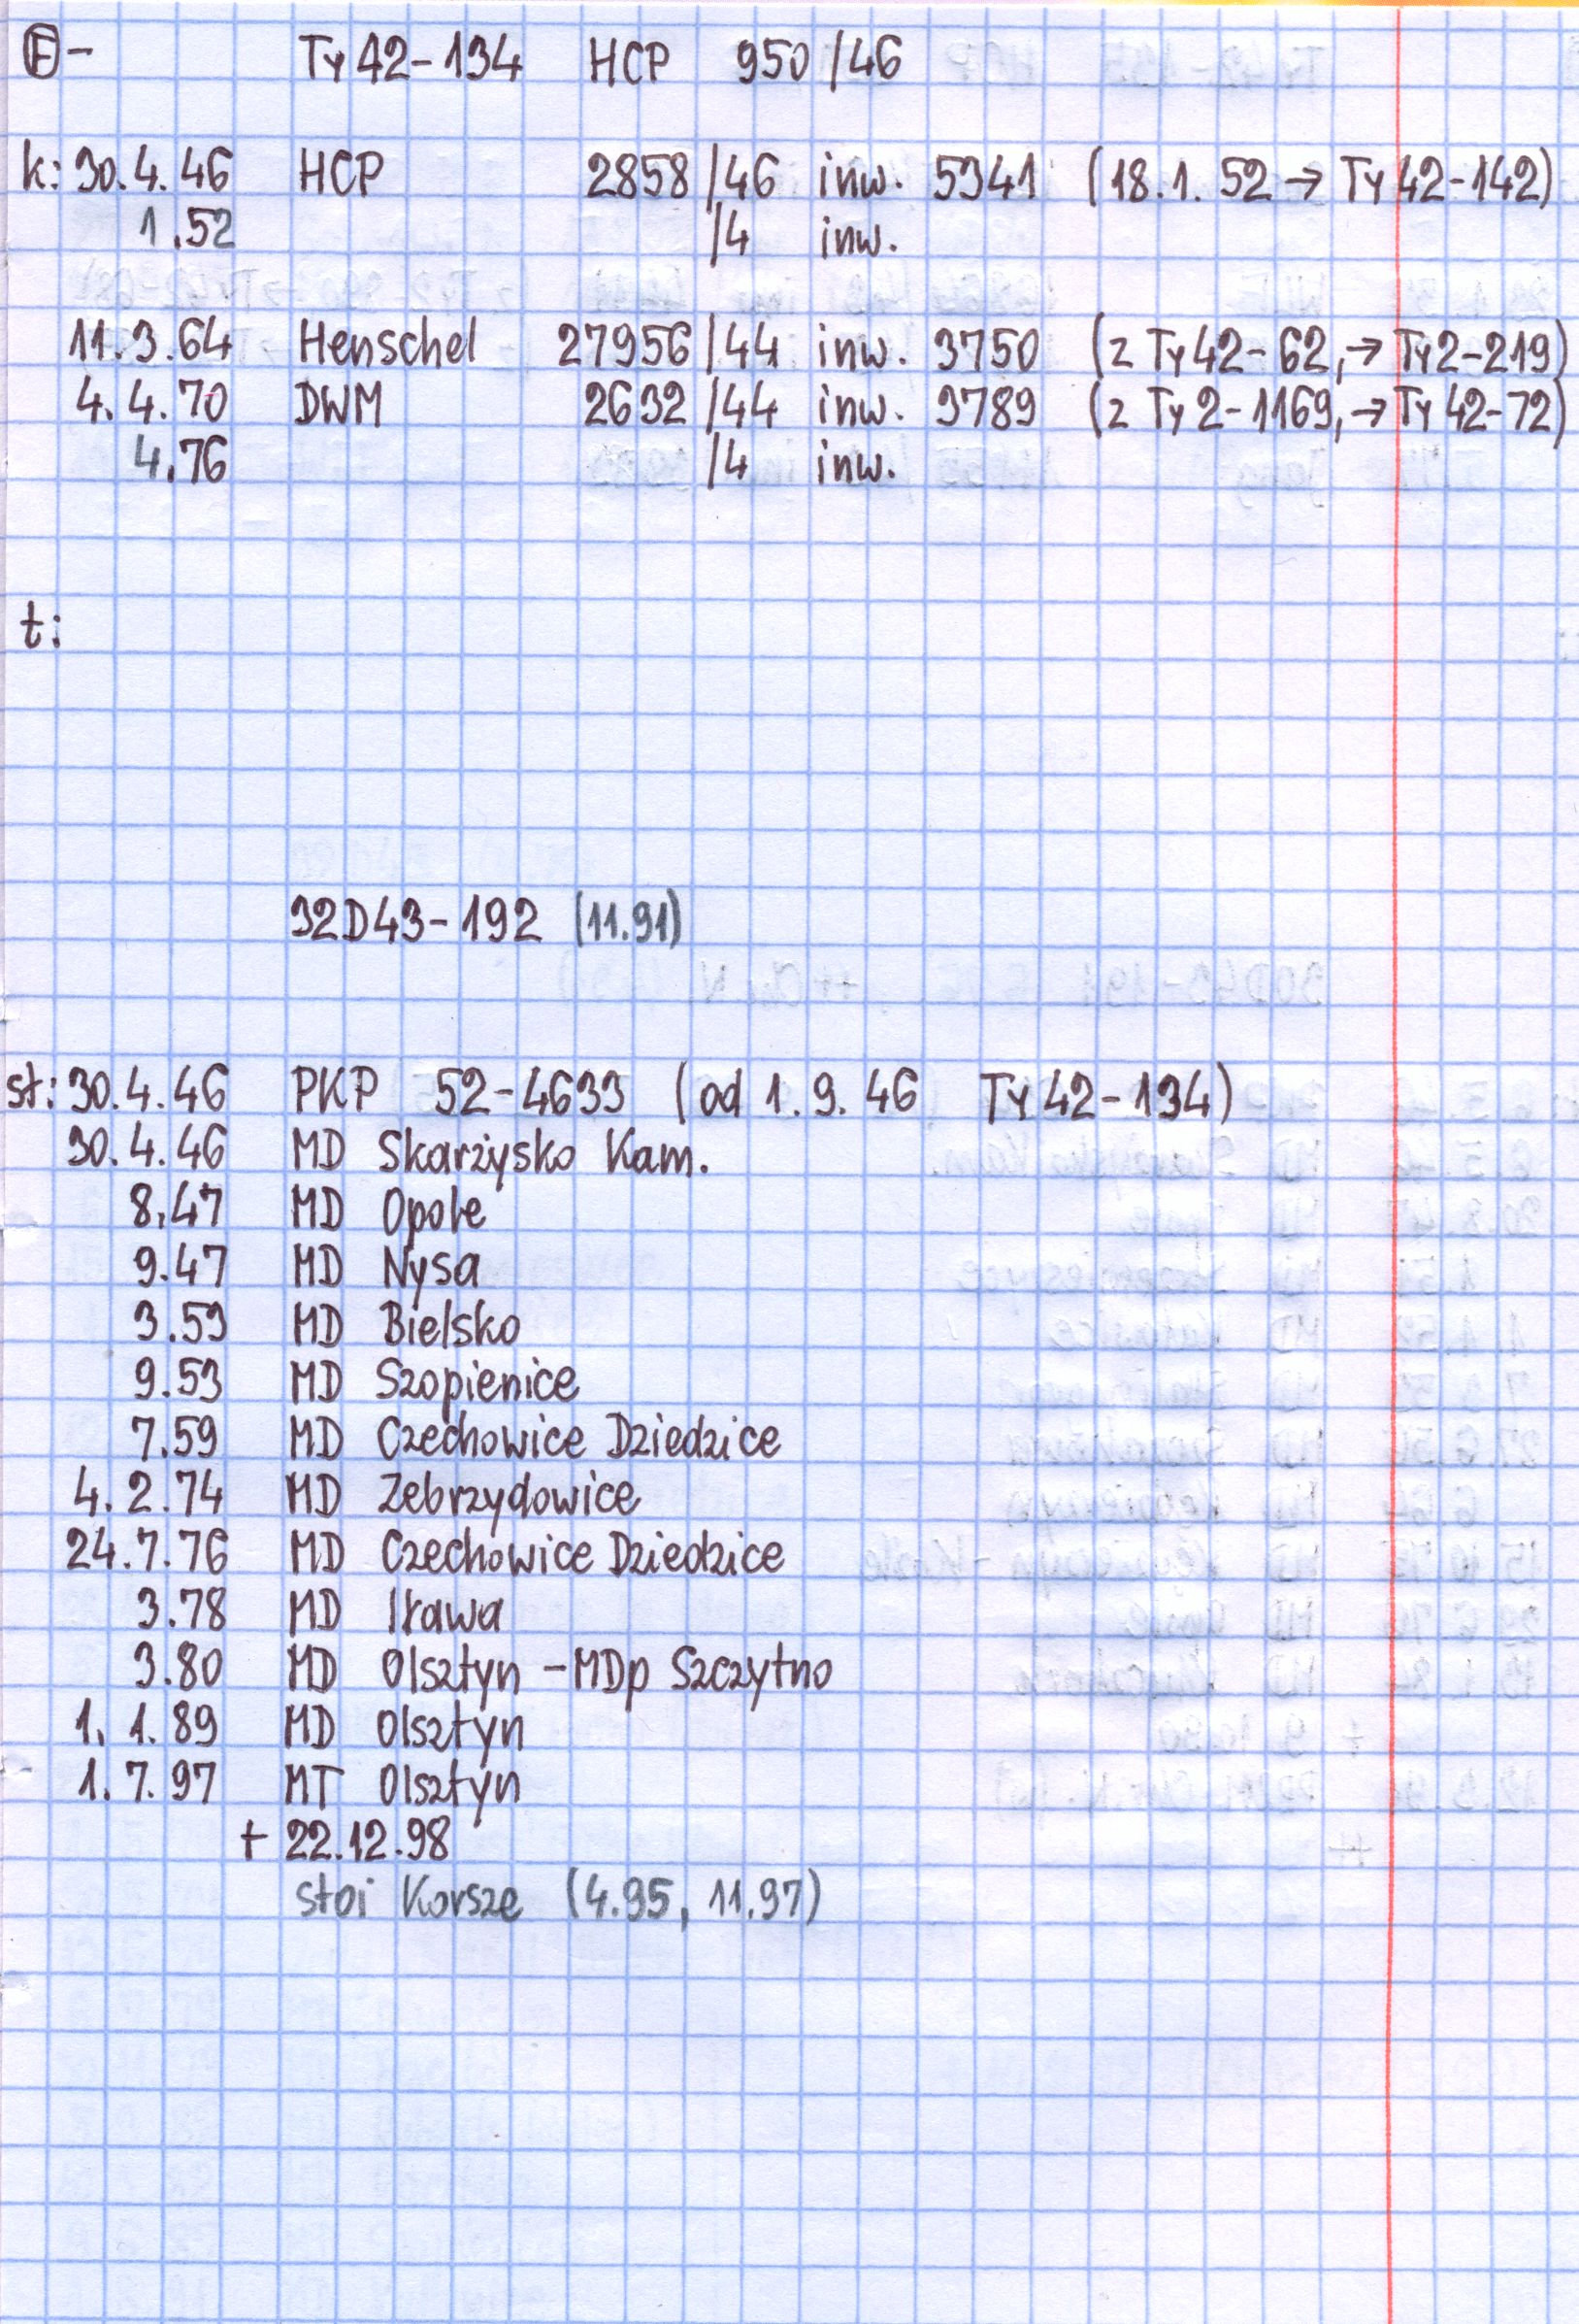 Ⓕ- Ty42-134 HCP 950/46
k: 30.4.46 HCP 2858/46 inw. 5341 (18.1.52 → Ty42-142)
1.52 /4 inw.
11.3.64 Henschel 27956/44 inw. 3750 (z Ty42-62, → Ty2-219)
4.4.70 DWM 2632/44 inw. 3789 (z Ty2-1169, → Ty42-72)
4.76 /4 inw.
t:
32D43-192 (11.91)
st: 30.4.46 PKP 52-4633 (od 1.9.46 Ty42-134)
30.4.46 MD Skarżysko Kam.
8.47 MD Opole
9.47 MD Nysa
3.53 MD Bielsko
9.53 MD Szopienice
7.59 MD Czechowice Dziedzice
4.2.74 MD Zebrzydowice
24.7.76 MD Czechowice Dziedzice
3.78 MD Iława
3.80 MD Olsztyn - MDp Szczytno
1.1.89 MD Olsztyn
1.7.97 MT Olsztyn
+ 22.12.98
stoi Korsze (4.95, 11.97)